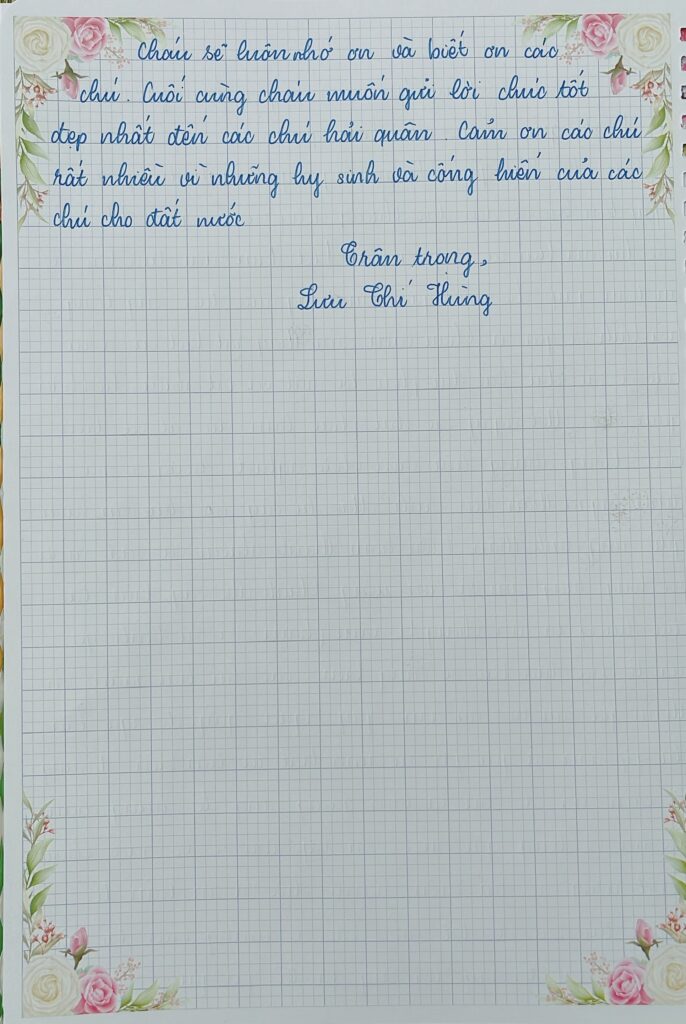 Cháu sẽ luôn nhớ ơn và biết ơn các
chú. Cuối cùng cháu muốn gửi lời chúc tốt
đẹp nhất đến các chú hải quân. Cảm ơn các chú
rất nhiều vì những hy sinh và cống hiến của các
chú cho đất nước
Trân trọng,
Lưu Chí Hùng